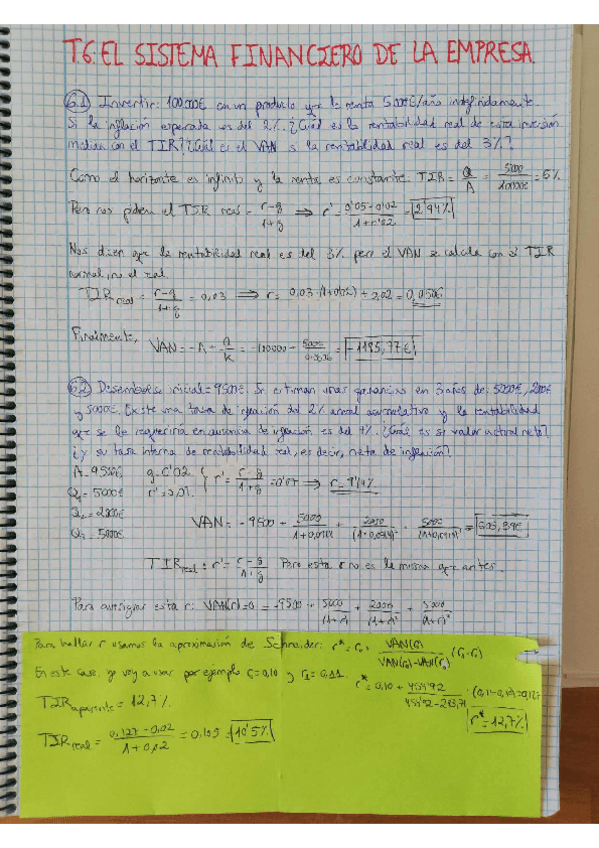 T.6: EL SISTEMA FINANCIERO DE LA EMPRESA.
6.1 Invertir: 100.000€ en un producto que le renta 5000€/año indefinidamente.
Si la inflación esperada es del 2%. ¿Cuál es la rentabilidad real de esta inversión
medida con el TIR? ¿Cuál es el VAN si la rentabilidad real es del 3%?
Como el horizonte es infinito y la renta es constante: TIR = Q/A = 5000/100000 = 5%
Pero nos piden el TIR real = r-g/1+g ⇒ r' = 0'05-0'02/1+0'02 = 2'94%
Nos dicen que la rentabilidad real es del 3% pero el VAN se calcula con el TIR
normal, no el real.
TIR real = r-g/1+g = 0,03 ⇒ r = 0,03·(1+0,02) + 0,02 = 0,0506
Finalmente, VAN = -A + Q/K = -100000 + 5000/0,0506 = -1185,77€
6.2 Desembolso inicial = 9500€. Se estiman unas ganancias en 3 años de: 5000€, 2000€
y 5000€. Existe una tasa de inflación del 2% anual acumulativo y la rentabilidad
que se le requeriría en ausencia de inflación es del 7%. ¿Cuál es su valor actual neto?
¿y su tasa interna de rentabilidad real, es decir, neta de inflación?
A = 9500€ g = 0'02 { r' = r-g/1+g = 0'07 ⇒ r = 9'14%
Q1 = 5000€ r' = 0,07
Q2 = 2000€
VAN = -9500 + 5000/1+0,0914 + 2000/(1+0,0914)² + 5000/(1+0,0914)³ =
Q3 = 5000€
TIR real: r' = r-g/1+g Pero esta r no es la misma que antes.
Para averiguar esta r: VAN(r)=0 = -9500 + 5000/1+r + 2000/(1+r)² + 5000/(1+r)³
Para hallar r usamos la aproximación de Schneider: r* = r₁ + VAN(r₁)/VAN(r₁)-VAN(r₂) (r₂-r₁)
En este caso, yo voy a usar por ejemplo r₁=0,10 y
r* = 0,10 +
TIR aparente = 12,7%
r* = 12,7%
TIR real = 0,127-0,02/1+0,02 = 0,105 = 10'5%